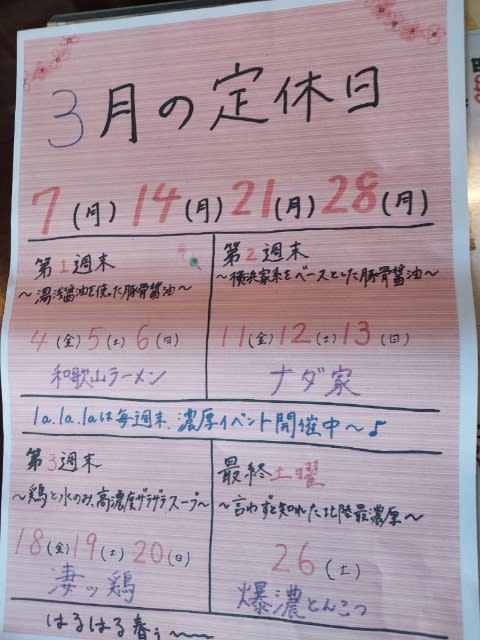 3月の定休日
7(月) 14(月) 21(月) 28(月)
第1週末
～湯浅醤油を使った豚骨醤油～
4(金) 5(土) 6(日)
和歌山ラーメン
第2週末
～横浜家系をベースとした豚骨醤油～
11(金) 12(土) 13(日)
ナダ家
la.la.laは毎週末、濃厚イベント開催中～♪
第3週末
～鶏と水のみ、高濃度ザラザラスープ～
18(金) 19(土) 20(日)
凄ッ鶏
最終土曜
～言わずと知れた北陸最濃厚～
26(土)
爆濃とんこつ
はるはる春ぅ～～